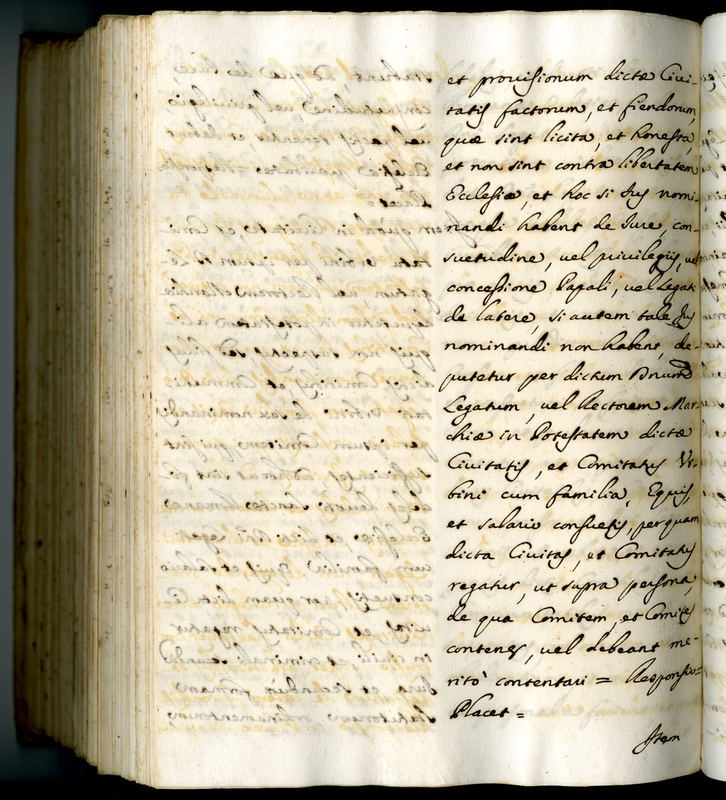 et provisionum dictæ Civi-
tatis factorum, et fiendorum,
quæ sint licita, et honesta,
et non sint contra libertatem
Ecclesiæ, et hoc si Jus nomi-
nandi habent de Jure, con-
suetudine, vel privilegijs, vel
concessione Papali, vel Legati
de latere, si autem tale Jus
nominandi non habent, de-
putetur per dictum Dnum
Legatum, vel Rectorem Mar-
chiæ in Potestatem dictæ
Civitatis, et Comitatus Ur-
bini cum familia, Equis,
et salario consuetis, per quam
dicta Civitas, et Comitatus
regatur, ut supra persona,
de qua Comitem, et Comites
contenes, vel debeant me-
ritò contentari = Responsio=
Placet =
Item